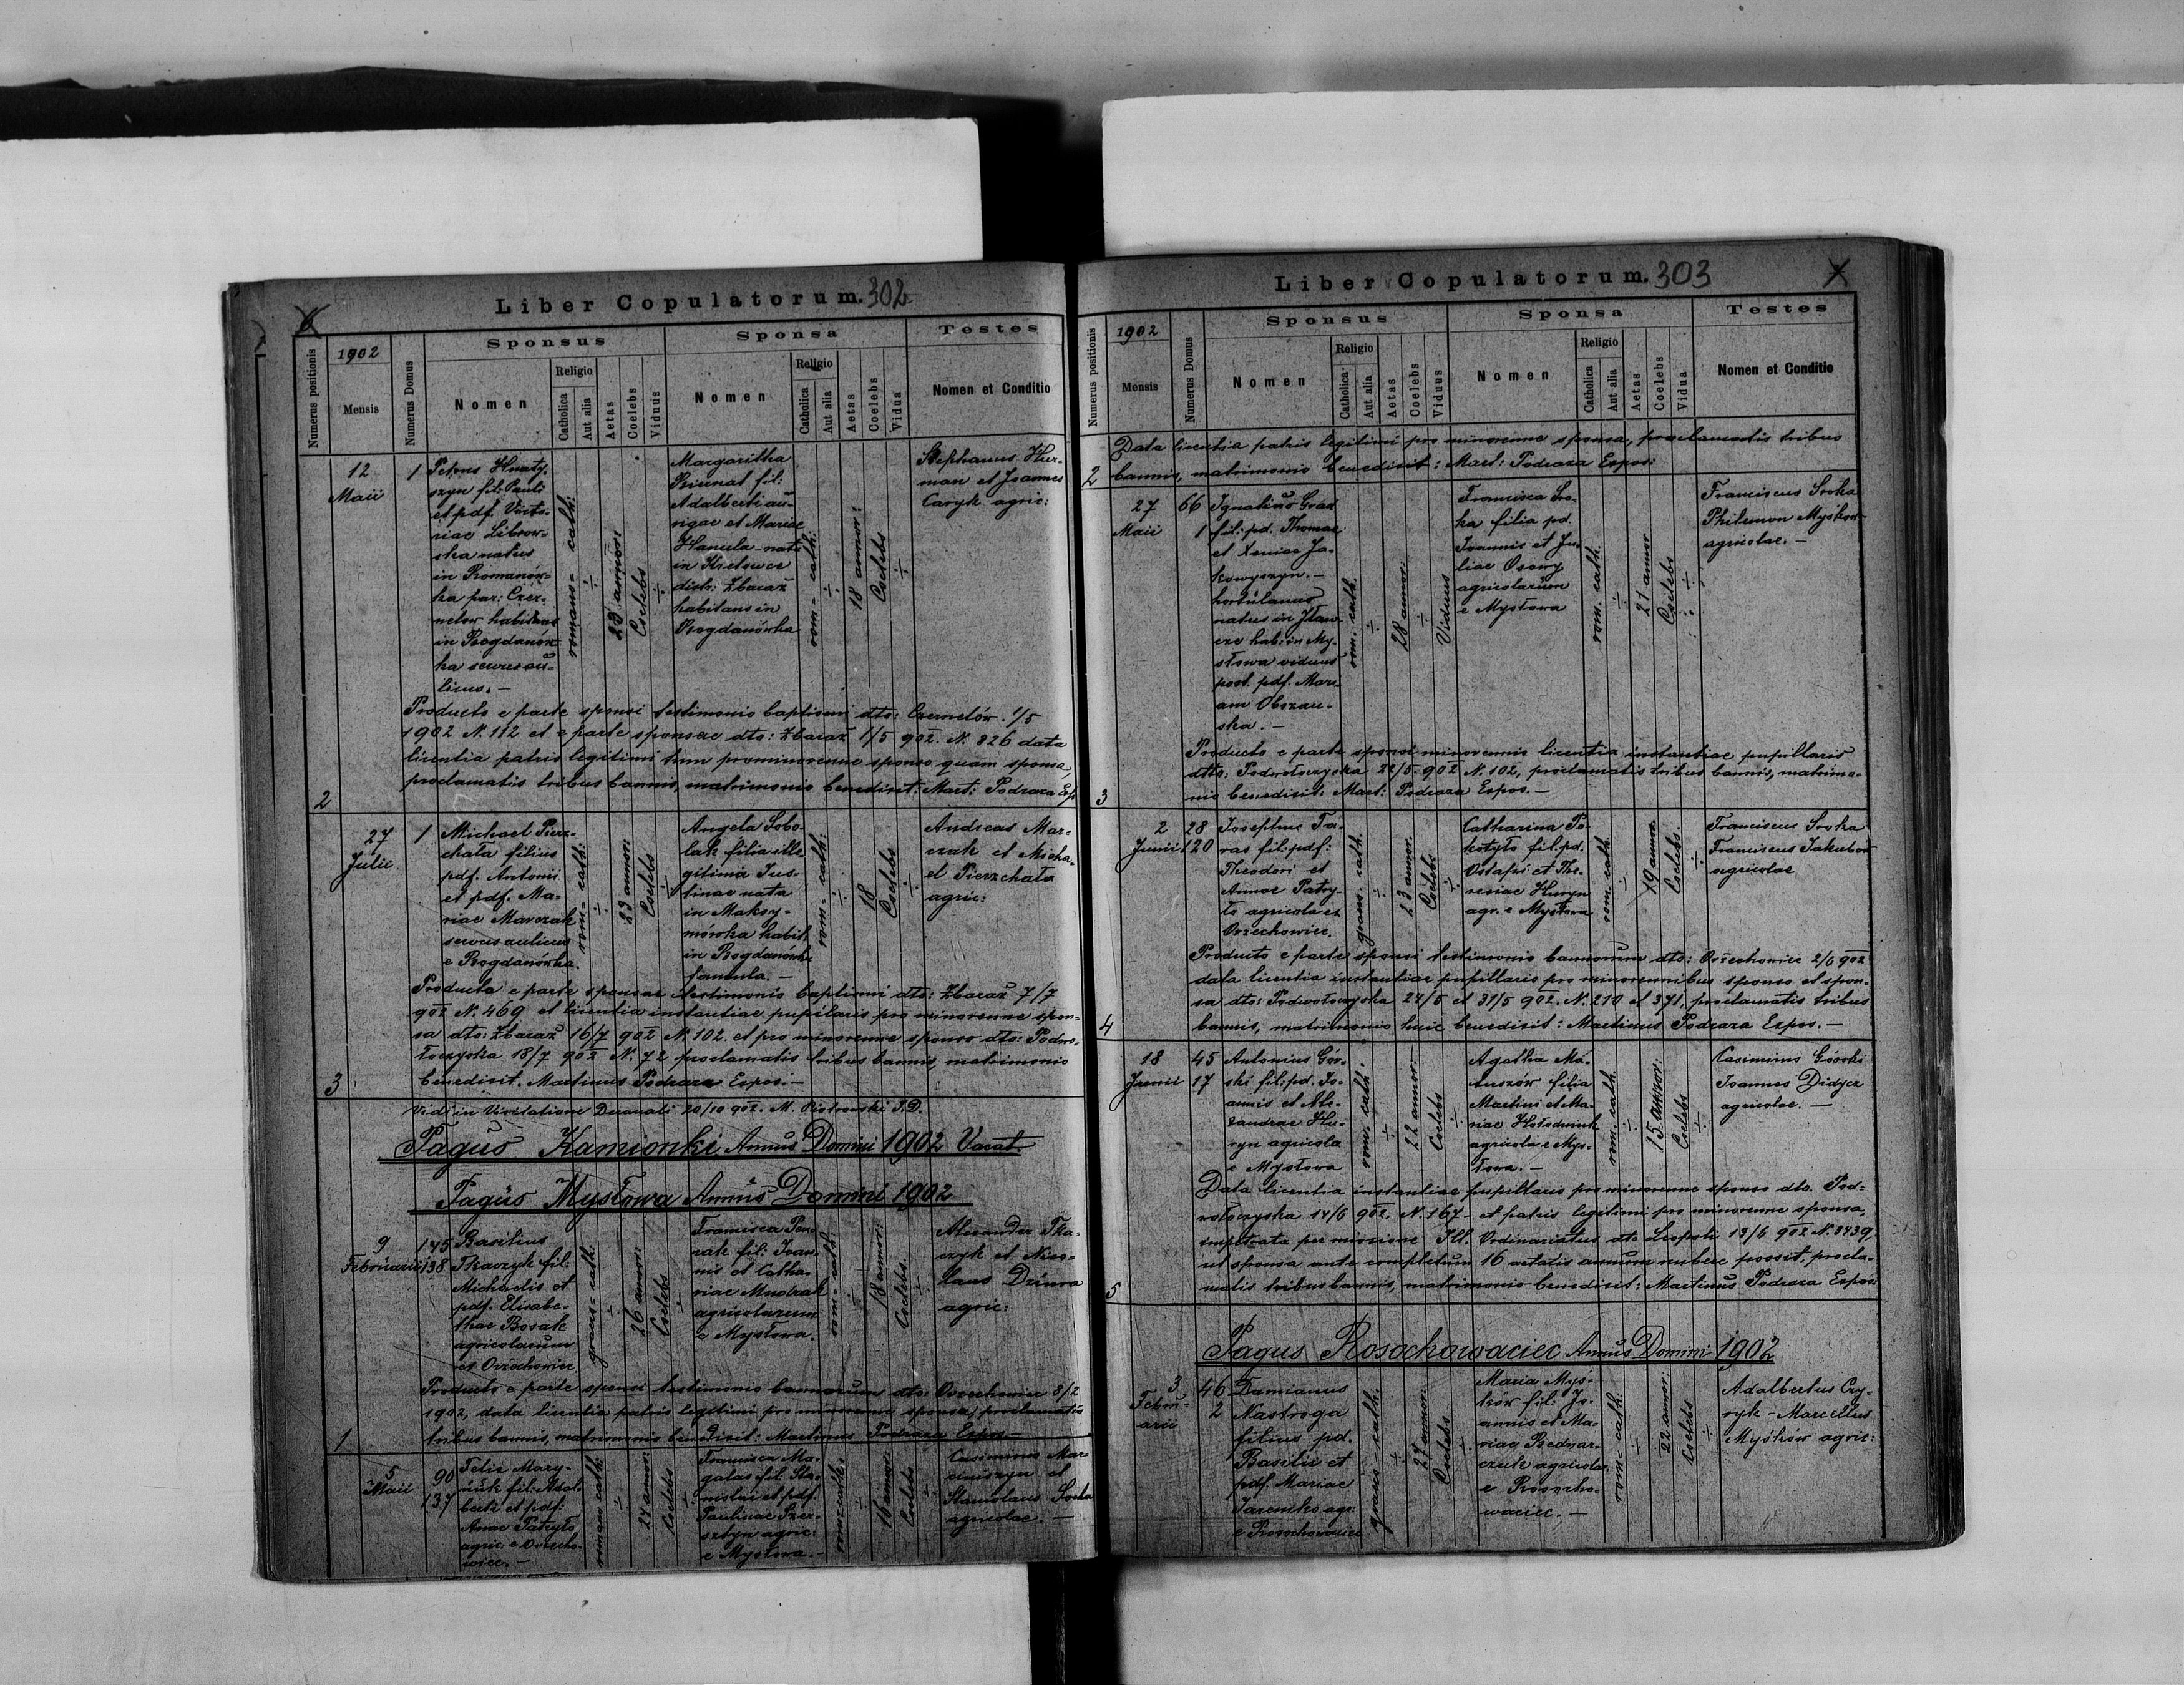 Liber Copulatorum. 302
6
Numerus positionis
1902
Mensis
Numerus Domus
Sponsus
Nomen
Religio
Catholica
Aut alia
Aetas
Coelebs
Viduus
Sponsa
Nomen
Religio
Catholica
Aut alia
Aetas
Coelebs
Vidua
Testes
Nomen et Conditio
2
12
Maii
1
Petrus Hnaty-
szyn fil: Pauli
et pdf. Victo-
riae Librow-
ska natus
in Romanów-
ka par: Czer-
nelow habitans
in Bogdanów-
ka servus au-
licus. —
romano- cath:
÷
23 annor:
Coelebs
÷
Margaritha
fil:
Adalberti au-
rigae et Mariae
Hamula nata
in Kretowce
distr: Zbaraż
habitans in
Bogdanówka
rom- cath:
÷
18 annor:
Coelebs
÷
Stephanus Hur-
man et Joannes
Caryk agric:
Producto e parte sponsi testimonio baptismi dto: Czernelów 1/5
1902 N. 112 et e parte sponsae dto: Zbaraż 1/5 902. N. 826 data
licentia patris legitimi tum pro minorenne sponso quam sponsa,
proclamatis tribus bannis, matrimonio benedixit: Mart: Podraza Exp.
3
27
Julii
1
Michael Pierz-
chała filius
pdf. Antonii
et pdf. Ma-
riae Marczak
servus aulicus
e Bogdanówka.
rom- cath:
÷
23 annor:
Coelebs
÷
Angela Sobo-
lak filia ille-
gitima Jus-
tinae nata
in Maksy-
mówka habit.
in Bogdanówka
famula. —
rom- cath:
÷
18
Coelebs
÷
Andreas Mar-
czak et Micha-
el Pierzchała
agric:
Producta e parte sponsae testimonio baptismi dto: Zbaraż 7/7
902 N. 469 et licentia instantiae pupilaris pro minorenne spon-
sa dto: Zbaraż 16/7 902 N. 102. et pro minorenne sponso dto: Podwo-
łoczyska 18/7 902 N. 72, proclamatis tribus bannis, matrimonio
benedixit. Martinus Podraza Expos: —
Vidi in Visitatione Decanali 20/10 902. M. Piotrowski J.D.
Pagus Kamionki Annus Domini 1902 Vacat.
Pagus Mysłowa Annus Domini 1902
1
9
Februarii
175
138
Basilius
Tkaczyk fil:
Michaelis et
pdf. Elisabe-
thae Bosak
agricolarum
ex Orzechowiec
graeco- cath:
÷
26 annor:
Coelebs
÷
Francisca
fil: Joan-
nis et Catha-
riae
agricolarum
e Mysłowa.
rom- cath:
÷
18 annor:
Coelebs.
÷
Alexander Tka-
czyk et Nico-
laus Dziura
agric:
Producto e parte sponsi testimonio bannorum dto: Orzechowiec 8/2
1902, data licentia patris legitimi pro minorenne sponsa, proclamatis
tribus bannis, matrimonio benedixit: Martinus Podraza Expos —
5
Maii
90
137
Felix Mary-
niuk fil: Adal-
berti et pdf:
Annae Patryło
agric: e Orzecho-
wiec. —
romano cath:
÷
24 annor:
Coelebs
÷
Francisca Ma-
galas fil: Sta-
nislai et pdf.
Paulinae
agric:
e Mysłowa. —
rom- cath:
÷
18 annor:
Coelebs
÷
Casimirus Mar-
ciniszyn et
Stanislaus Socha
agricolae. —
Liber Copulatorum. 303
7
Numerus positionis
1902
Mensis
Numerus Domus
Sponsus
Nomen
Religio
Catholica
Aut alia
Aetas
Coelebs
Viduus
Sponsa
Nomen
Religio
Catholica
Aut alia
Aetas
Coelebs
Vidua
Testes
Nomen et Conditio
2
Data licentia patris legitimi pro minorenne sponsa, proclamatis tribus
bannis, matrimonio benedixit: Mart: Podraza Expos:
3
27
Maii
66
1
Ignatius Grad
fil: pd. Thomae
et Xeniae Ja-
kowyszyn. —
hortulanus
natus in Iław-
cze hab: in My-
słowa viduus
post. pdf. Mari-
am Obszań-
ska. —
rom. cath.
÷
28 annor:
÷
Viduus
Francisca Sro-
ka filia pd.
Joannis et Ju-
liae Osowy
agricolarum
e Mysłowa
rom. cath.
÷
21 annor
Coelebs
÷
Franciscus Sroka
Philemon Myśkow
agricolae. —
Producto e parte sponsi minorennis licentia instantiae pupillaris
dtto: Podwołoczyska 22/5 902 N. 102, proclamatis tribus bannis, matrimo-
nio benedixit: Mart: Podraza Expos. —
4
2
Junii
28
120
Josephus Ta-
ras fil: pdf:
Theodori et
Annae Patry-
ło agricola ex
Orzechowiec.
graec. cath.
÷
23 annor.
Coelebs
÷
Catharina Po-
kotyło fil: pd.
Ostaphi et The-
resiae Huryn
agr. e Mysłowa
rom. cath.
÷
19 annor.
Coelebs.
÷
Franciscus Sroka
Franciscus Jakubow
agricolae
Producto e parte sponsi testimonio bannorum dto: Orzechowiec 2/6 902
data licentia instantiae pupillaris pro minorennibus sponso et spon-
sa dto: Podwołoczyska 27/5 et 31/5 902. N. 210 et 371, proclamatis tribus
bannis, matrimonio huic benedixit: Martinus Podraza Expos. —
5
18
Junii
45
17
Antonius Gór-
ski fil: pd. Jo-
annis et Ale-
xandrae Hu-
ryn agricola
e Mysłowa
rom. cath.
÷
22 annor:
Coelebs
÷
Agatha Ma-
tuszów filia
Martini et Ma-
riae Hołodniuk
agricolae e Mys-
łowa. —
rom. cath.
÷
15 annor:
Coelebs
÷
Casimirus Górski
Joannes Didycz
agricolae. —
Data licentia instantiae pupillaris pro minorenne sponso dto. Pod-
wołoczyska 14/6 902. N. 167 — et patris legitimi pro minorenne sponsa,
impetrata permissione Ill. Ordinariatus dto Leopoli 13/6 902 N. 2439,
ut sponsa ante completum 16 aetatis annum nubere possit, procla-
matis tribus bannis, matrimonio benedixit: Martinus Podraza Expos:
Pagus Rosochowaciec Annus Domini 1902
3
Febru-
arii
46
2
Damianus
Nastroga
filius pd.
Basilii et
pdf. Mariae
Jaremko agr:
e Rosochowaciec
graeco- cath:
÷
27 annor:
Coelebs
÷
Maria Mys-
ków fil: Jo-
annis et Ma-
riae Bednar-
czuk agricolae
e Rosocho-
waciec. —
rom- cath:
÷
22 annor:
Coelebs
÷
Adalbertus Czy-
ryk — Marcellus
Myśków agric: